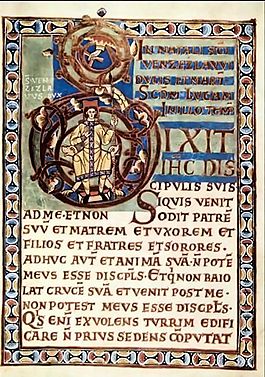 IN NATALI SCI
VENZEZLAVVI
DVCIS
S VEN
ZIZLA
VVS DVX
IN ILLO
DIXIT
IHC DIS
CIPVLIS SVIS
SIQVIS VENIT
AD ME · ET NON ODIT PATRĒ
SVV̄ ET MATREM ET VXOREM ET
FILIOS ET FRATRES ET SORORES ·
ADHVC AVT ET ANIMĀ SVĀ · N̄ POTĒ
MEVS ESSE DISCPL̄S · ET QI NON BAIO
LAT CRVCĒ SVĀ ET VENIT POST ME ·
NON POTEST MEVS ESSE DISCPL̄S ·
QS ENĪ EX VOLENS TVRRIM EDIFI
CARE N̄ PRIVS SEDENS CŌPVTAT